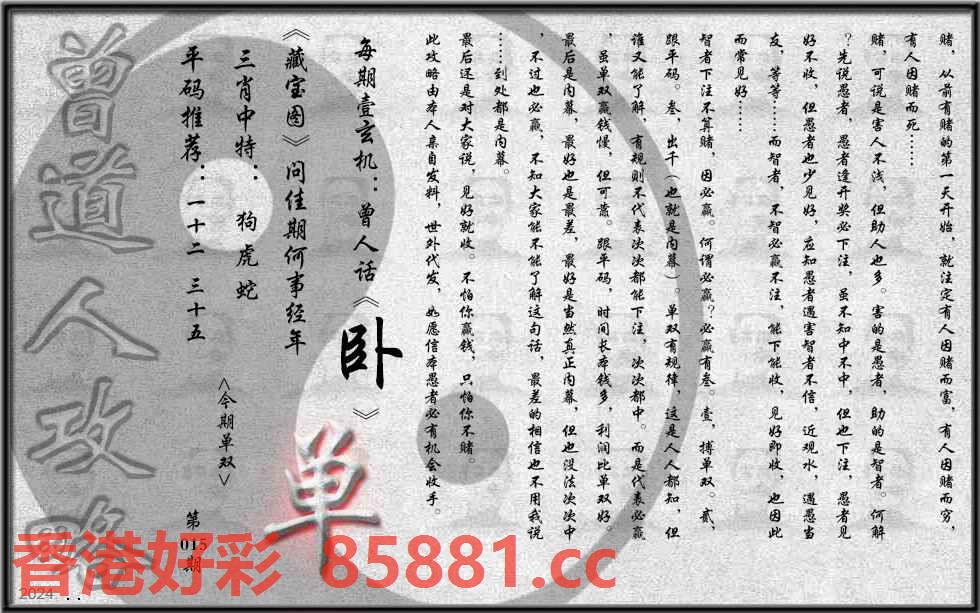 赌，从前有赌的第一天开始，就注定有人因赌而富，有人因赌而穷，
有人因赌而死……
赌，可说是害人不浅，但助人也多。害的是愚者，助的是智者。何解
？先说愚者，愚者逢开奖必下注，虽不知中不中，但也下注，愚者见
好不收，但愚者也少见好，应知愚者遇害智者不信，近观水，遇愚当
友，等等……而智者，不智必赢不注，能下能收，见好即收，也因此
而常见好……
智者下注不算赌，因必赢。何谓必赢？必赢有叁。壹，搏单双。贰，
跟平码。叁，出千（也就是内幕）。单双有规律，这是人人都知，但
谁又能了解，有规则不代表次次都能下注，次次都中。而是代表必赢
，虽单双赢钱慢，但可靠。跟平码，时间长本钱多，利润比单双好。
最后是内幕，最好也是最差，最好是当然真正内幕，但也没法次次中
，不过也必赢，不知大家能不能了解这句话，最差的相信也不用我说
……到处都是内幕。
最后还是对大家说，见好就收。不怕你赢钱，只怕你不赌。
此攻略由本人亲自发料，世外代发，如愿信本愚者必有机会收手。
每期壹玄机：曾人话《卧》
《藏宝图》问佳期何事经年
三肖中特：狗虎蛇
平码推荐：一十二 三十五
<今期单双>
单
第015期
曾道人攻略
香港好彩 85881.cc
2024